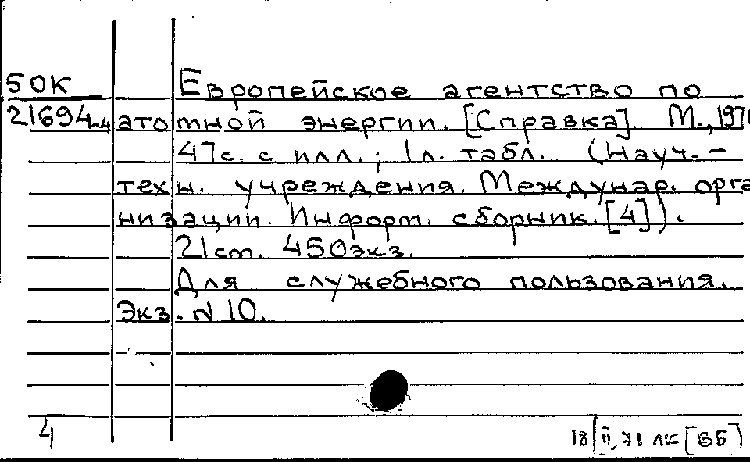 50К
21694-4
Европейское агентство по
атомной энергии. [Справка] М., 197
47с. с илл.; 1л. табл. (Науч.-
техн. учреждения. Междунар. орга
низации. Информ. сборник. [4]).
21см. 450экз.
Для служебного пользования.
Экз. N 10.
4
18/II, 71 [65]